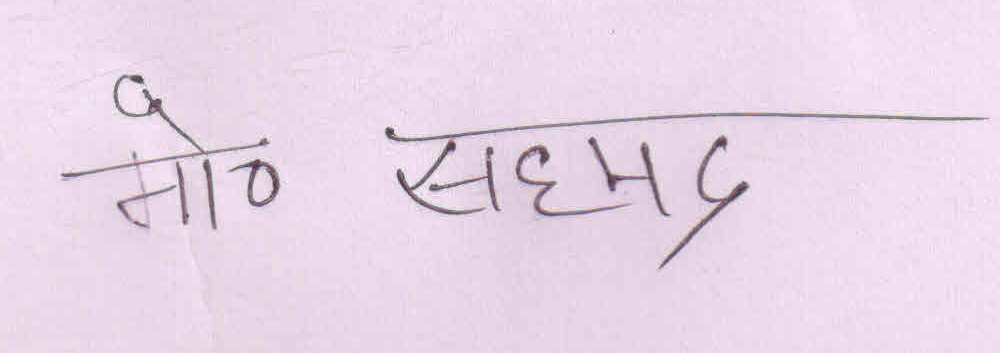 मो० सहमद